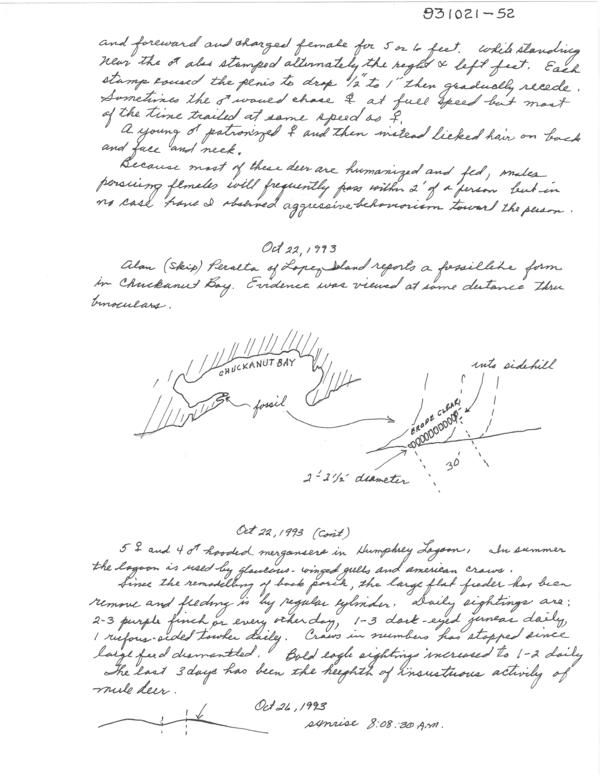 931021-52
and foreward and charged female for 5 or 6 feet. While standing
near the ♂ also stamped alternately the right & left feet. Each
stamp caused the penis to drop ½" to 1" then gradually recede.
Sometimes the ♂ would chase ♀ at full speed but most
of the time trailed at same speed as ♀.
A young ♂ patronized ♀ and then instead licked hair on back
and face and neck.
Because most of these deer are humanized and fed, males
persuing flemales will frequently pass within 2' of a person but in
no case have I observed aggressive behaviorism toward the person.
Oct 22, 1993
Alan (Skip) Peralta of Lopez Island reports a fossillike form
in Chuckanut Bay. Evidence was viewed at some distance thru
binoculars.
CHUCKANUT BAY
into sidehill
fossil
ERODE CLEAR
2'-2½' diameter
30'
Oct 22, 1993 (Cont)
5 ♀ and 4 ♂ hooded mergansers in Humphrey Lagoon. In summer
the lagoon is used by glaucous-winged gulls and american crows.
Since the remodelling of back porch, the large flat feeder has been
remove and feeding is by regular cylinder. Daily sightings are:
2-3 purple finch or every other day, 1-3 dark-eyed juncos daily,
1 rufous-sided towhee daily. Crows in numbers has stopped since
large feed dismantled. Bald eagle sightings increased to 1-2 daily
The last 3 days has been the heighth of insestuous activity of
mule deer.
Oct 26, 1993
sunrise 8:08:30 A.M.